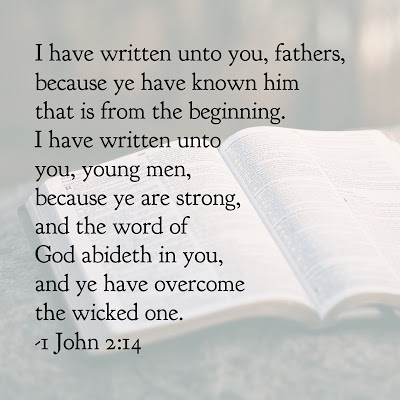 I have written unto you, fathers,
because ye have known him
that is from the beginning.
I have written unto
you, young men,
because ye are strong,
and the word of
God abideth in you,
and ye have overcome
the wicked one.
-1 John 2:14